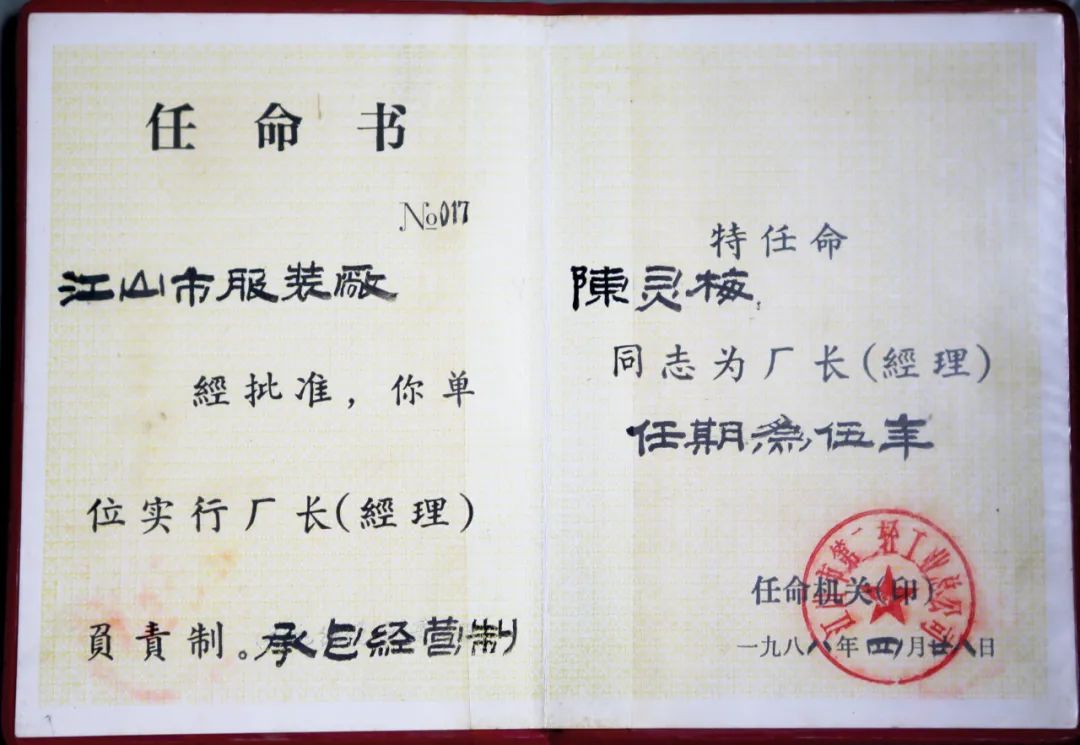 任命书
№017
江山市服装廠
經批准，你单
位实行厂长(經理)
負責制。承包经营制
特任命
陳灵梅
同志为厂长(經理)
任期為伍年
任命机关(印)
江山市第二轻工业总公司
一九八八年四月廿八日